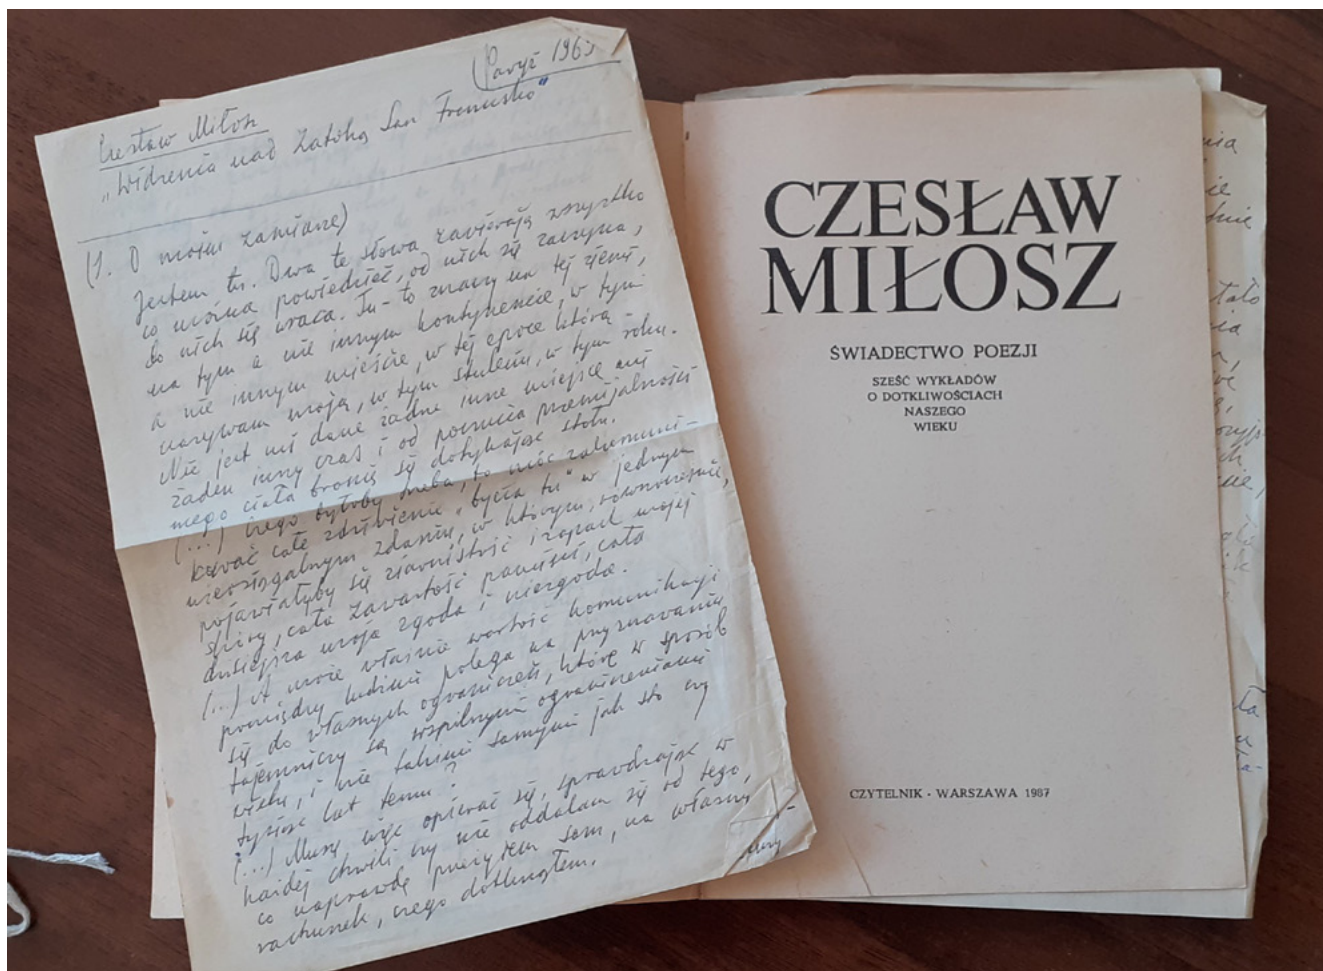 (Paryż 1969
Czesław Miłosz
„Widzenia nad Zatoką San Francisko"
(1. O moim zamiarze)
Jestem tu. Dwa te słowa zawierają wszystko
co można powiedzieć, od nich się zaczyna,
do nich się wraca. Tu - to znaczy na tej ziemi,
na tym a nie innym kontynencie, w tym
a nie innym mieście, w tej epoce którą
nazywam moją, w tym stuleciu, w tym roku.
Nie jest mi dane żadne inne miejsce ani
żaden inny czas i od poczucia przemijalności
mego ciała bronię się dotykając stołu.
(...) Czego byłoby trzeba, to móc zakomuni-
kować całe zdziwienie „bycia tu" w jednym
nieosiągalnym zdaniu, w którym, równocześnie,
pojawiałyby się ziarnistość i zapach mojej
skóry, cała zawartość pamięci, cała
dzisiejsza moja zgoda i niezgoda.
(...) A może właśnie wartość komunikacji
pomiędzy ludźmi polega na przyznawaniu
się do własnych ograniczeń, które w sposób
tajemniczy są wspólnymi ograniczeniami
wielu, i nie takimi samymi jak sto czy
tysiąc lat temu?
(...) Muszę więc opierać się, sprawdzając w
każdej chwili czy nie oddalam się od tego,
co naprawdę przeżyłem sam, na własny
rachunek, czego dotknąłem.
CZESŁAW
MIŁOSZ
ŚWIADECTWO POEZJI
SZEŚĆ WYKŁADÓW
O DOTKLIWOŚCIACH
NASZEGO
WIEKU
CZYTELNIK · WARSZAWA 1987